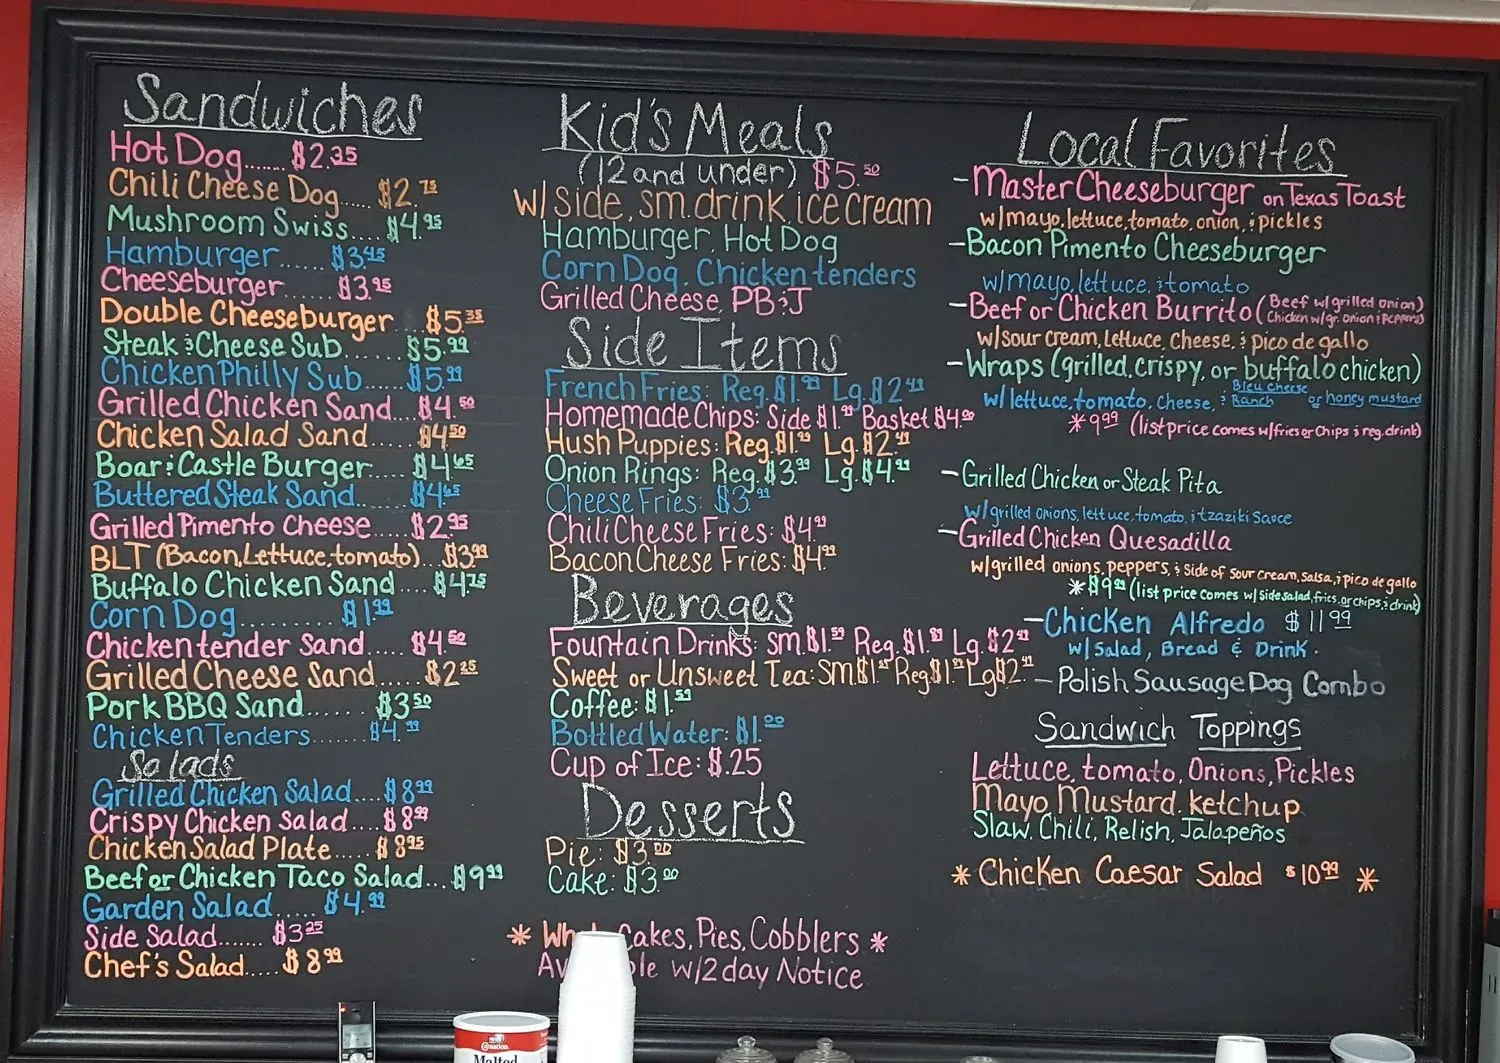 Sandwiches
Hot Dog...... $2.35
Chili Cheese Dog.... $2.75
Mushroom Swiss.... $4.95
Hamburger...... $3.45
Cheeseburger...... $3.95
Double Cheeseburger... $5.35
Steak & Cheese Sub...... $5.99
Chicken Philly Sub..... $5.99
Grilled Chicken Sand... $4.50
Chicken Salad Sand..... $4.50
Boar & Castle Burger.... $4.65
Buttered Steak Sand.... $4.65
Grilled Pimento Cheese.... $2.95
BLT (Bacon, Lettuce, tomato)... $3.99
Buffalo Chicken Sand.... $4.75
Corn Dog.......... $1.99
Chicken tender Sand.... $4.50
Grilled Cheese Sand..... $2.25
Pork BBQ Sand....... $3.50
Chicken Tenders....... $4.99
Salads
Grilled Chicken Salad.... $8.99
Crispy Chicken Salad.... $8.99
Chicken Salad Plate..... $8.95
Beef or Chicken Taco Salad... $9.99
Garden Salad..... $4.99
Side Salad....... $3.25
Chef's Salad..... $8.99
Kid's Meals
(12 and under) $5.50
w/ side, sm. drink, ice cream
Hamburger, Hot Dog
Corn Dog, Chicken tenders
Grilled Cheese, PB & J
Side Items
French Fries: Reg. $1.99 Lg. $2.49
Homemade Chips: Side $1.99 Basket $4.00
Hush Puppies: Reg. $1.99 Lg. $2.49
Onion Rings: Reg. $3.99 Lg. $4.99
Cheese Fries: $3.99
Chili Cheese Fries: $4.99
Bacon Cheese Fries: $4.99
Beverages
Fountain Drinks: sm. $1.59 Reg. $1.89 Lg. $2.49
Sweet or Unsweet Tea: Sm. Reg. Lg.
Coffee: $1.59
Bottled Water: $1.00
Cup of Ice: $.25
Desserts
Pie: $3.00
Cake: $3.00
* Cakes, Pies, Cobblers *
w/ 2 day Notice
Local Favorites
- Master Cheeseburger on Texas Toast
w/ mayo, lettuce, tomato, onion, & pickles
- Bacon Pimento Cheeseburger
w/ mayo, lettuce, & tomato
- Beef or Chicken Burrito (Beef w/ grilled onion)
Chicken w/ gr. onion & peppers)
w/ sour cream, lettuce, cheese, & pico de gallo
- Wraps (grilled, crispy, or buffalo chicken)
w/ lettuce, tomato, cheese, & Bleu cheese Ranch or honey mustard
* 9.99 (list price comes w/ fries or chips & reg. drink)
- Grilled Chicken or Steak Pita
w/ grilled onions, lettuce, tomato, & tzaziki Sauce
- Grilled Chicken Quesadilla
w/ grilled onions, peppers, & side of sour cream, salsa, & pico de gallo
* $9.99 (list price comes w/ side salad, fries, or chips, & drink)
- Chicken Alfredo $11.99
w/ Salad, Bread & Drink.
- Polish Sausage Dog Combo
Sandwich Toppings
Lettuce, tomato, Onions, Pickles
Mayo, Mustard, ketchup
Slaw, Chili, Relish, Jalapeños
* Chicken Caesar Salad $10.99 *
Carnation
Malted